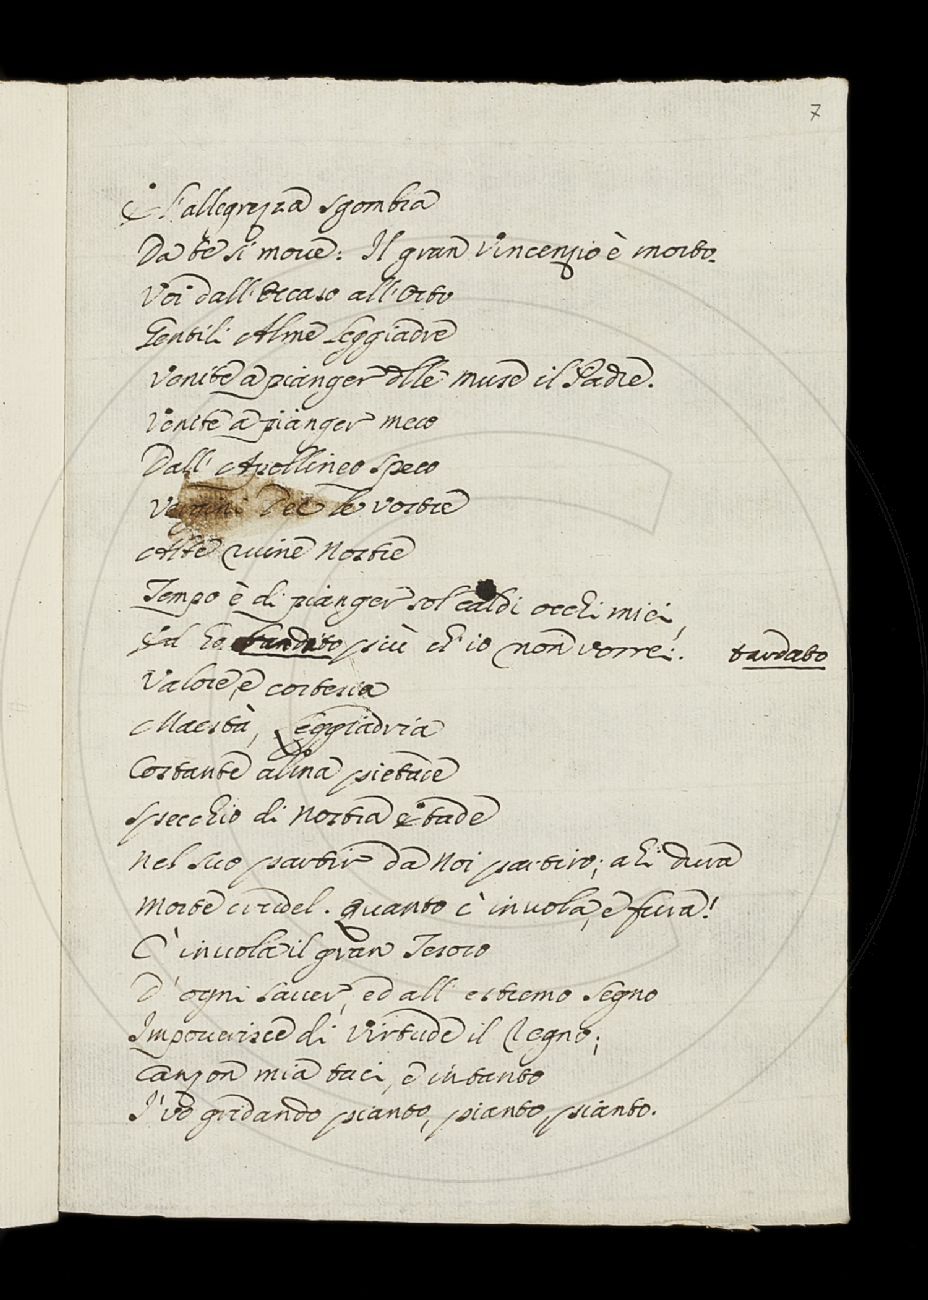 7
E l'allegrezza sgombra
Da te si move: Il gran Vincenzio è morto.
Voi dall'Occaso all'Orto
Gentili Alme leggiadre
Venite a pianger dlle muse il Padre.
Venite a pianger meco
Dall' Apollineo speco
Vergini Dee le vostre
Alte ruine Nostre
Tempo è di pianger sol caldi occhi miei,
Ed ha tardato più ch'io non vorrei. tardato
Valore, e cortesia
Maestà, Leggiadria
Costante alma pietade
specchio di Nostra etade
Nel suo partir da Noi partiro; ahi dura
Morte crudel. Quanto c'invola, e fura!
C'invola il gran Tesoro
D' ogni saver, ed all' estremo segno
Impoverisce di Virtude il Regno;
Canzon mia taci, e intanto
I' vo gridando pianto, pianto, pianto.